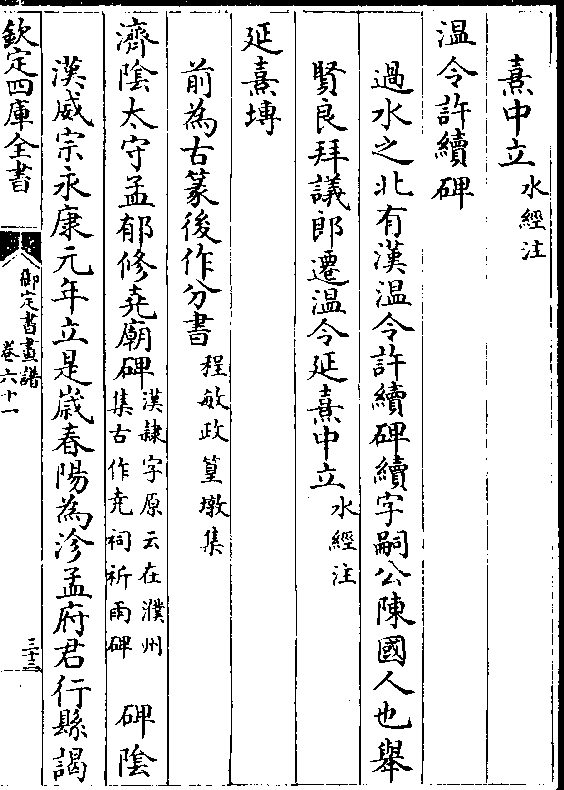 熹中立水經注
溫令許續碑
過水之北有漢溫令許續碑續字嗣公陳國人也舉
賢良拜議郎遷溫令延熹中立水經注
延熹塼
前為古篆後作分書程敏政篁墩集
濟陰太守孟郁修尭廟碑漢隷字原云在濮州集古作尭祠祈雨碑 碑陰
漢威宗永康元年立是嵗春陽為沴孟府君行縣謁
欽定四庫全書
御定書畫譜
卷六十一
三十三